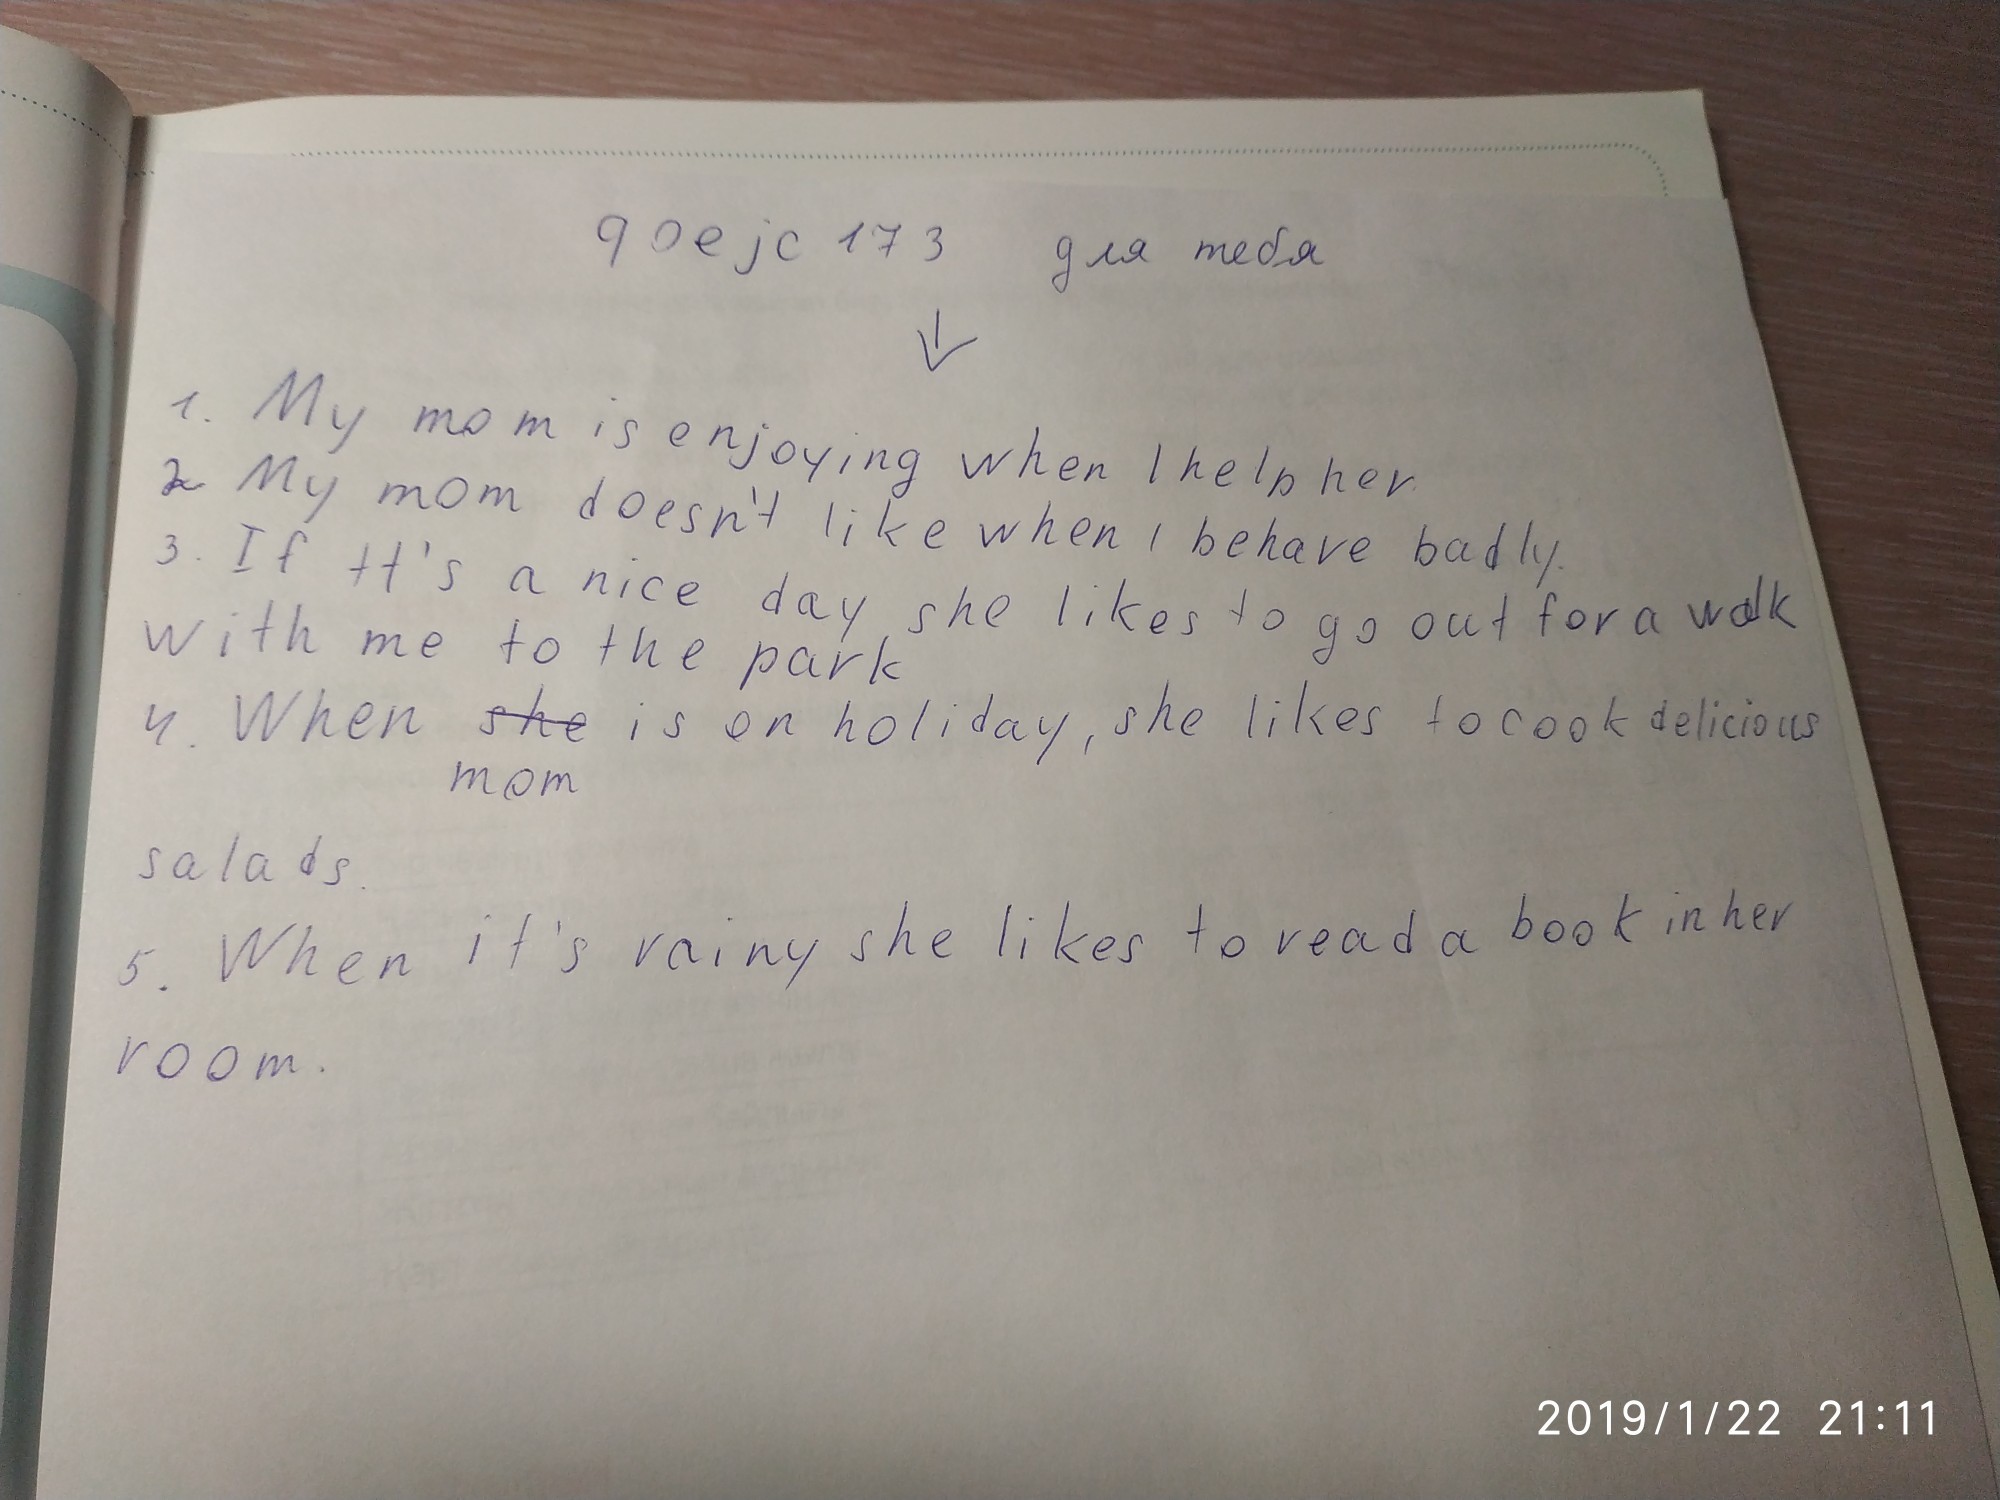 qoejc173 для тебя
1. My mom is enjoying when I help her.
2 My mom doesn't like when I behave badly.
3. If it's a nice day, she likes to go out for a walk
with me to the park
4. When she is on holiday, she likes to cook delicious
mom
salads.
5. When it's rainy she likes to read a book in her
room.
2019/1/22 21:11